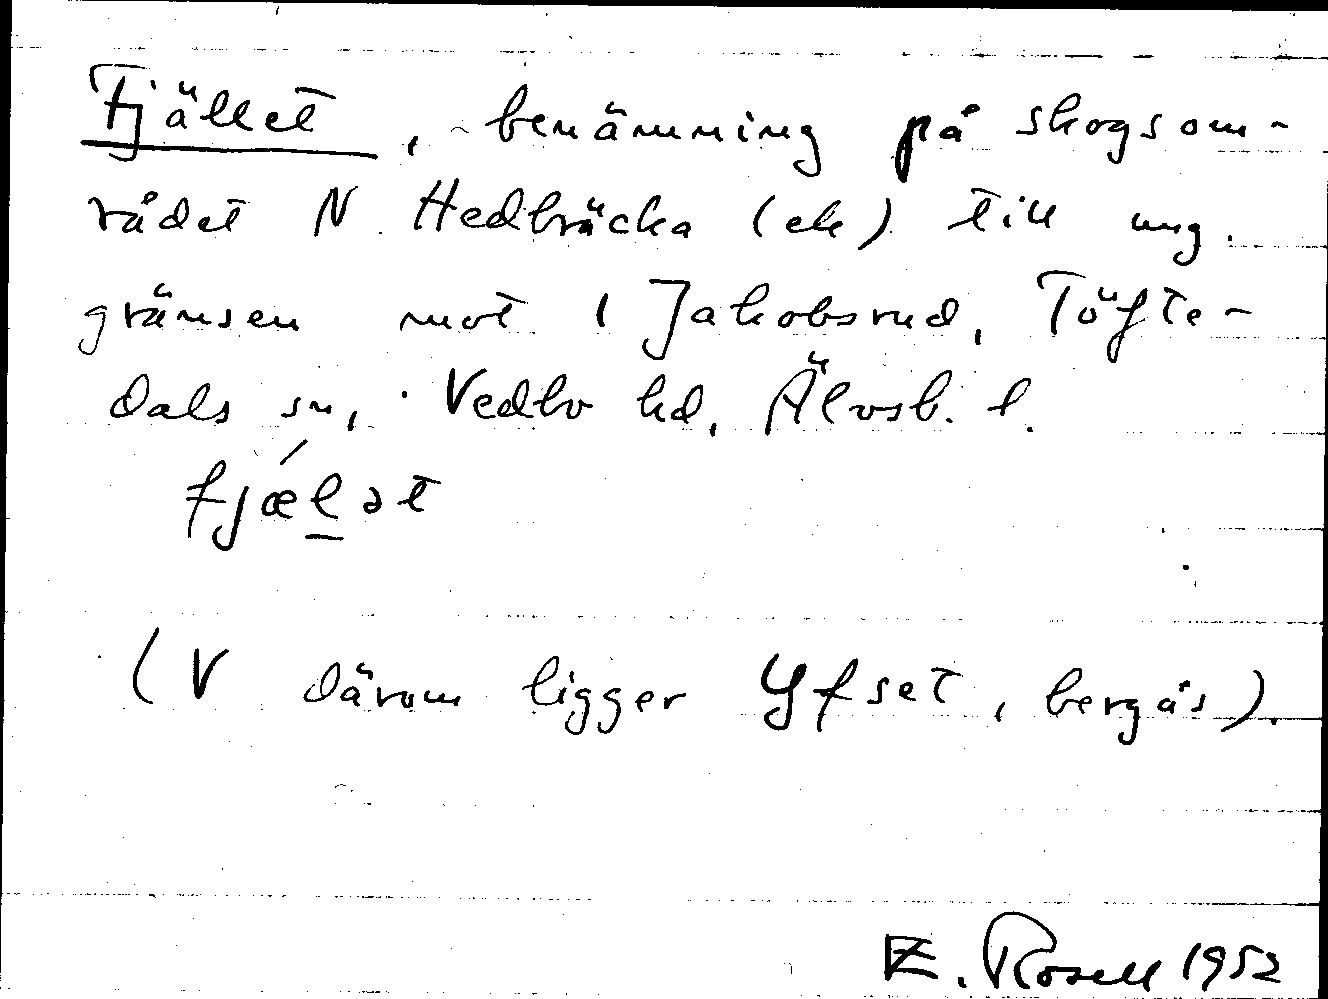 Fjället, benämning på skogsom-
rådet N Hedbräcka (ek) till ung.
gränsen mot 1 Jakobsrud, Töfte-
dals sn, Vedbo hd, Älvsb. l.
fjǽl̲ət
(V därom ligger Yfset, bergås).
E. Rosell 1952